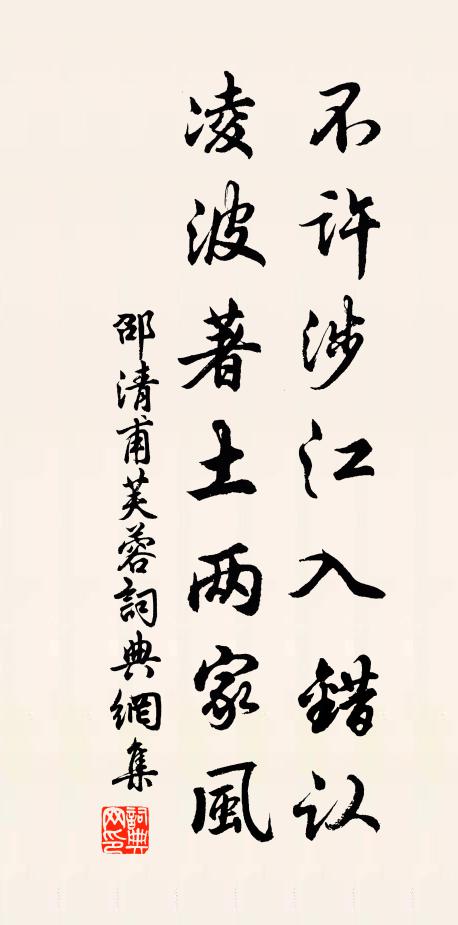 不许涉江入錯认
凌波著土两家風
邵清甫芙蓉詞典網集
詞典网印